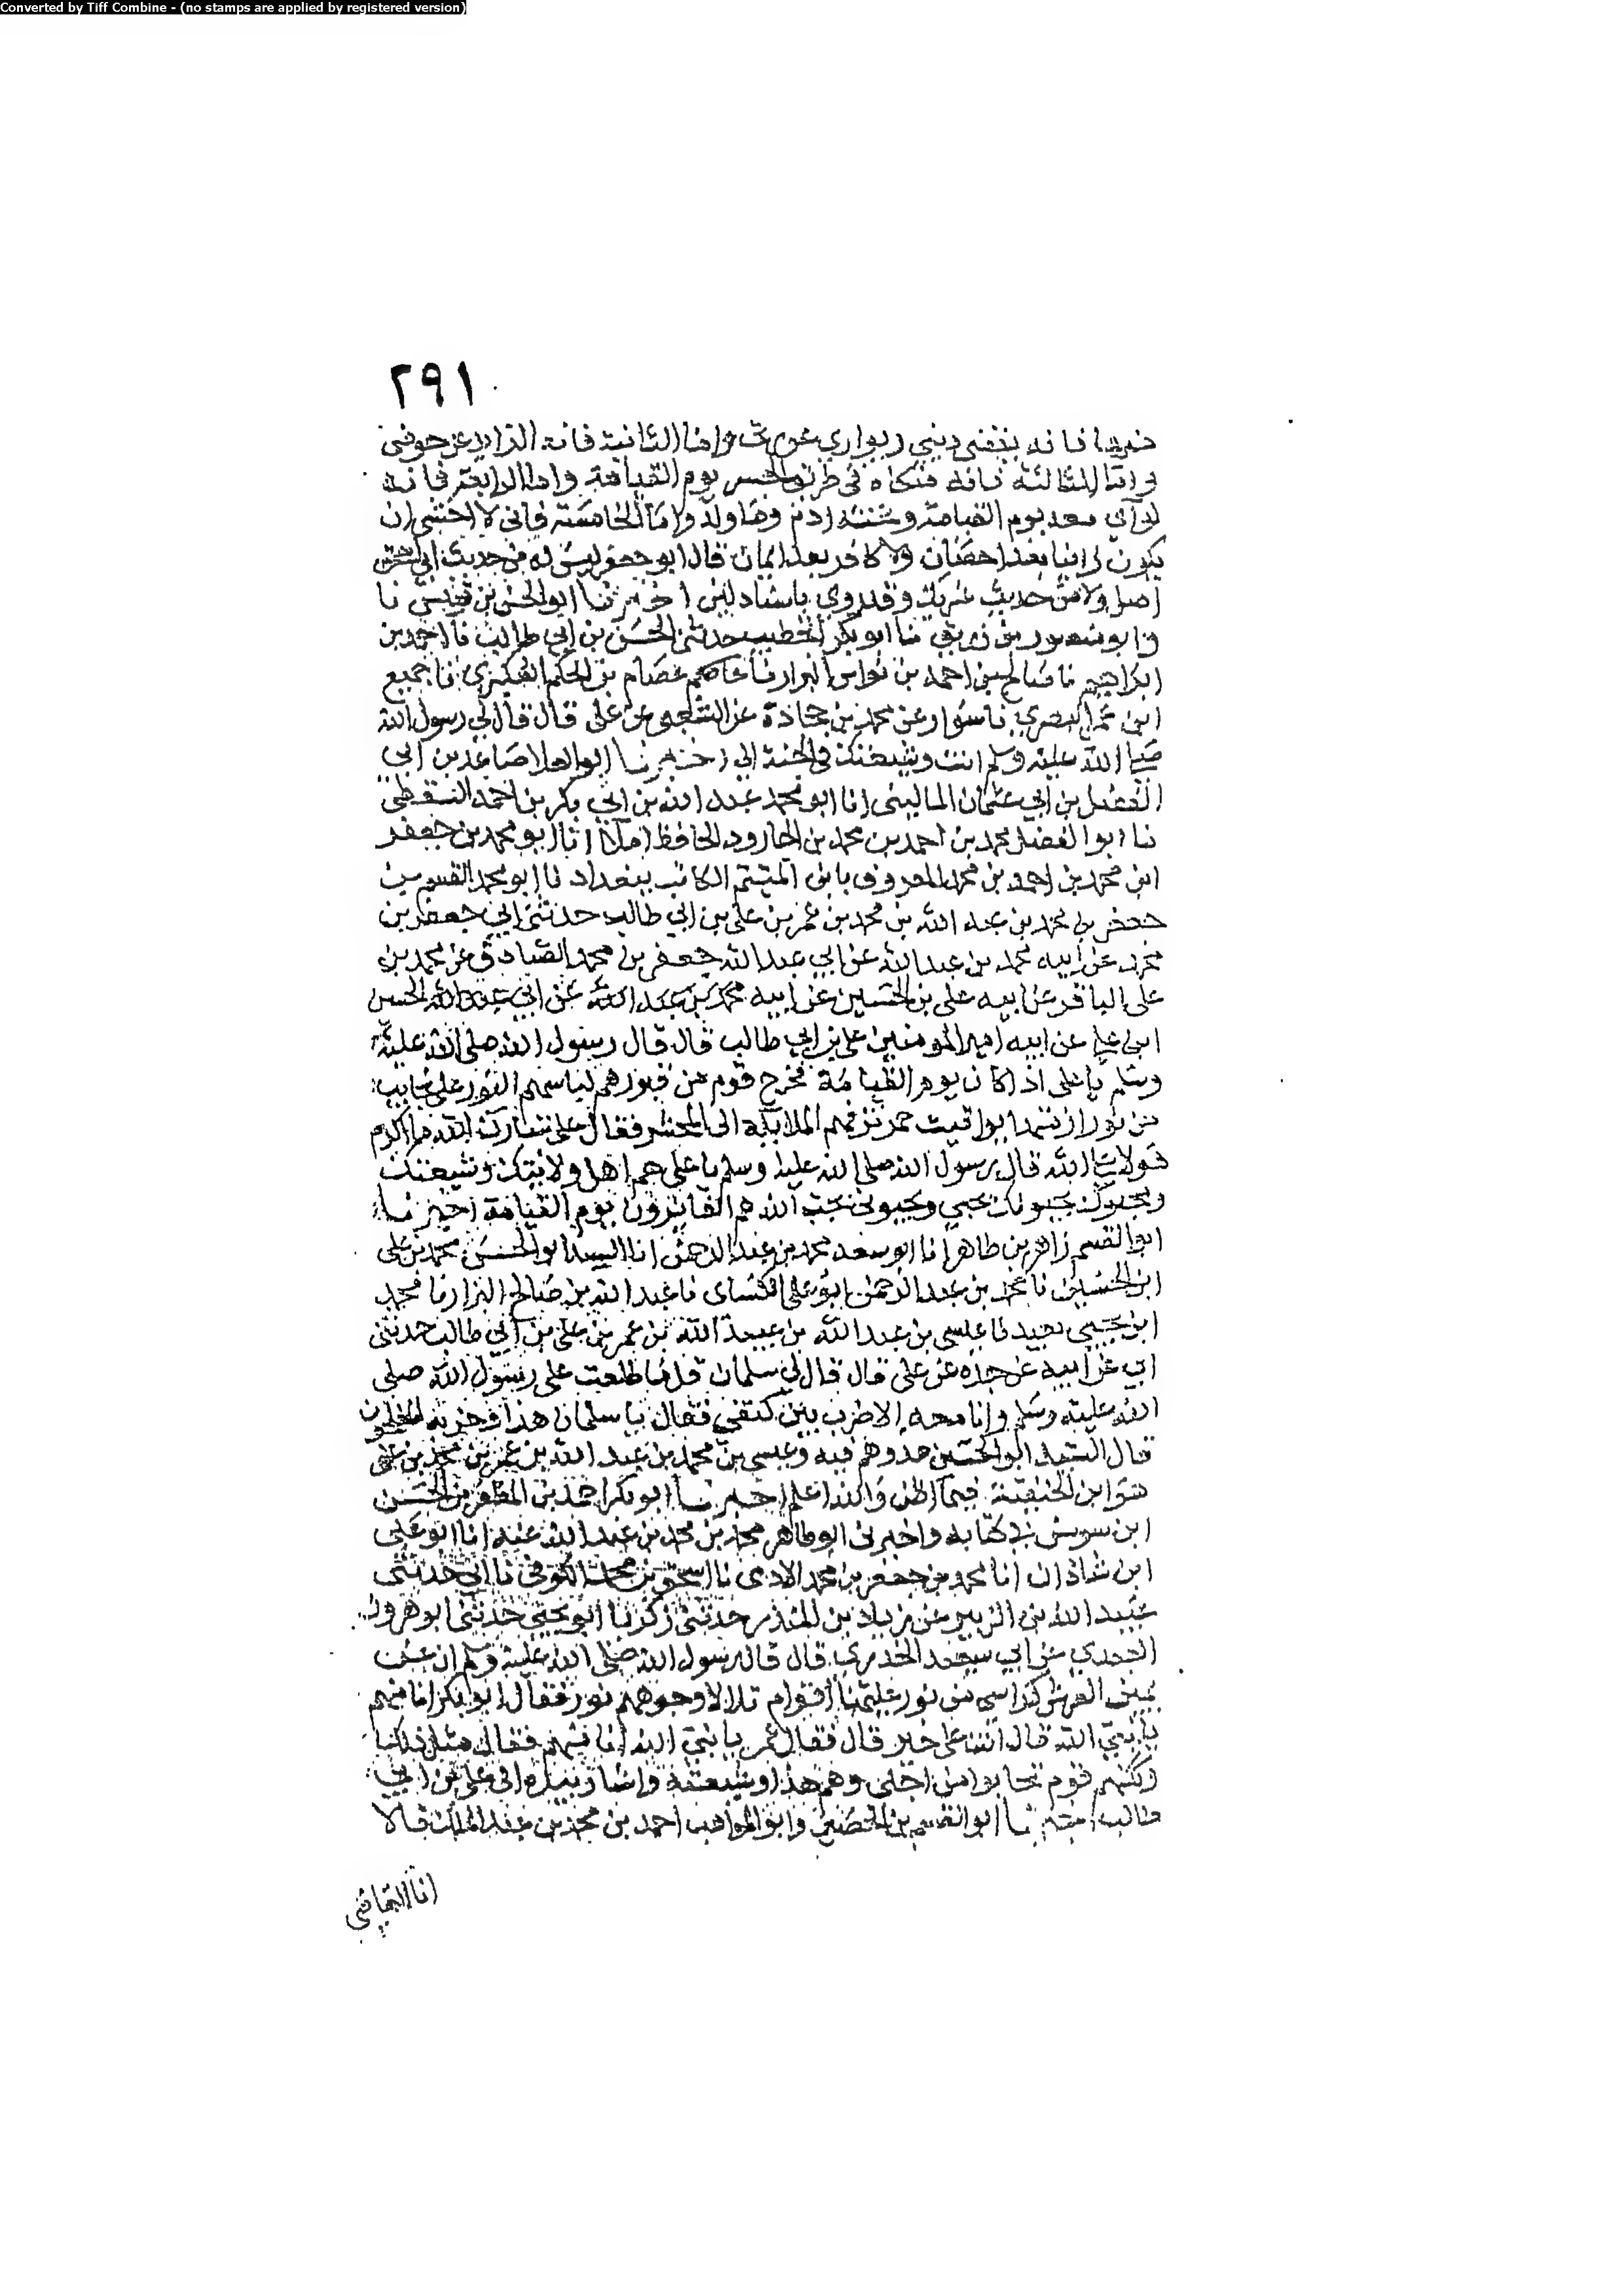 Converted by Tiff Combine - (no stamps are applied by registered version)
٢٩١
فانه يقضي ديني ويواري عورتي واما الثانية فانه الذايد عن حوضي
واما الثالثة فانه متكاه في طريق الحشر يوم القيامة واما الرابعة فانه
لوآي معه يوم القيامة وتحته ادم وما ولد واما الخامسة فاني لا اخشى ان
يكون زانيا بعد احصان ولا كافر بعد ايمان قال ابو جعفر ليس له من حديث ابي
اصل ولا من حديث شريك وقد روي باسناد لين اخبرنا ابو الحسن بن قبيس نا
وابو منصور بن زريق نا ابو بكر الخطيب حدثني الحسن بن ابي طالب نا احمد بن
ابراهيم نا صالح بن احمد بن يونس البزار نا عاصم عصام بن الحكم العكبري نا جميع
ابن عمر البصري نا سوار عن محمد بن جحادة عن الشعبي عن علي قال قال لي رسول الله
صلى الله عليه وسلم انت وشيعتك في الجنة اخبرنا ابو العلا صاعد بن ابي
الفضل بن ابي عثمان الماليني انا ابو محمد عبد الله بن ابي بكر بن احمد السقطي
نا ابو الفضل محمد بن احمد بن محمد بن الجارود الحافظ املا انا ابو محمد بن جعفر
ابن محمد بن احمد بن محمد المعروف بابن المتيم الكاتب ببغداد نا ابو محمد القسم بن
جعفر بن محمد بن عبد الله بن محمد بن عمر بن علي بن ابي طالب حدثني ابي جعفر بن
محمد عن ابيه محمد بن عبد الله عن ابي عبد الله جعفر بن محمد الصادق عن محمد بن
علي الباقر عن ابيه علي بن الحسين عن ابيه محمد بن عبد الله عن ابي عبد الله الحسن
ابن علي عن ابيه امير المومنين علي بن ابي طالب قال قال رسول الله صلى الله عليه
وسلم يا علي اذا كان يوم القيامة يخرج قوم من قبورهم لباسهم النور على نجايب
من نور ازمتها يواقيت حمر تزفهم الملايكة الى المحشر فقال علي تبارك الله ما اكرم
هولاء على الله قال رسول الله صلى الله عليه وسلم يا علي هم اهل ولايتك وشيعتك
ومحبوك يحبونك بحبي ويحبوني بحب الله هم الفايزون يوم القيامة اخبرنا
ابو القسم زاهر بن طاهر انا ابو سعد محمد بن عبد الرحمن انا السيد ابو الحسن محمد بن علي
ابن الحسين نا محمد بن عبد الرحمن ابو علي الكسائ نا عبد الله بن صالح البزار نا محمد
ابن يحيى نا عيسى بن عبد الله بن عبيد الله بن عمر بن علي بن ابي طالب حدثني
ابي عن ابيه عن جده عن علي قال قال لي سلمان قل ما طلعت على رسول الله صلى
الله عليه وسلم وانا معه الا ضرب بين كتفي فقال يا سلمان هذا وحزبه المفلحون
قال السيد ابو الحسين حدوهم فيه وعيسى بن محمد بن عبد الله بن عمر بن محمد بن علي
هو ابن الحنفية فيما اظن والله اعلم اخبرنا ابو بكر احمد بن المظفر بن الحسن
ابن سوسن في كتابه واخبرني ابو طاهر محمد بن محمد بن عبد الله عنه انا ابو علي
ابن شاذان انا محمد بن جعفر بن محمد الادمى نا اسحق بن محمد الكوفي نا ابي حدثني
عبيد الله بن الزبير عن زياد بن المنذر حدثني زكريا ابو يحيى حدثني ابو هرون
العبدي عن ابي سعيد الخدري قال قال رسول الله صلى الله عليه وسلم ان عن
يمين العرش كراسي من نور عليها اقوام تلالا وجوههم نور فقال ابو بكر انا منهم
يا نبي الله قال انت على خير قال فقال عمر يا نبي الله انا منهم فقال مثل ذلك
ولكنهم قوم تحابوا من اجلي وهم هذا وشيعته واشار بيده الى علي بن ابي
طالب اخبرنا ابو القسم بن الحصين وابو المواهب احمد بن محمد بن عبد الملك قالا
انا القاضي